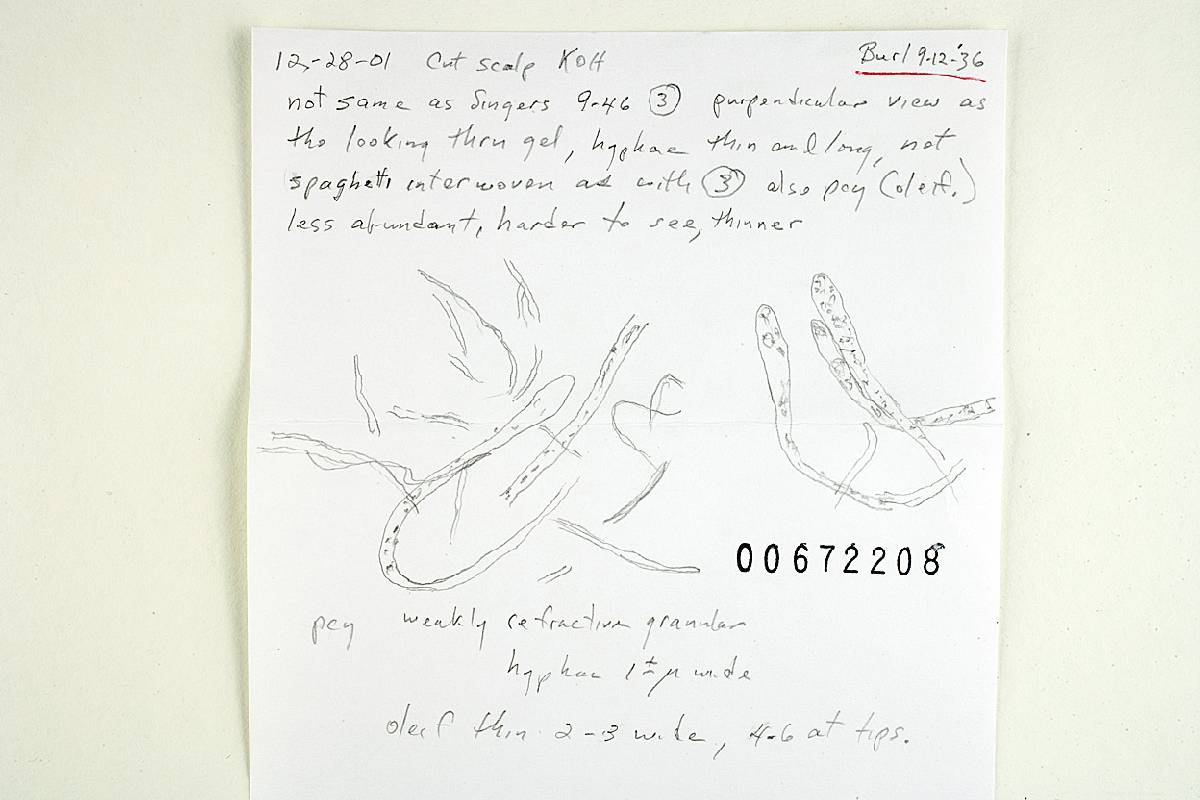 12-28-01 Cut scalp KOH
Burl 9-12-'36
not same as Singers 9-46 ③ purpendicular view as
tho looking thru gel, hyphae thin and long, not
spaghetti interwoven as with ③ also pcy (oleif.)
less abundant, harder to see, thinner
00672208
pcy weakly refractive granular
hyphae 1± µ wide
oleif thin 2-3 wide, 4-6 at tips.